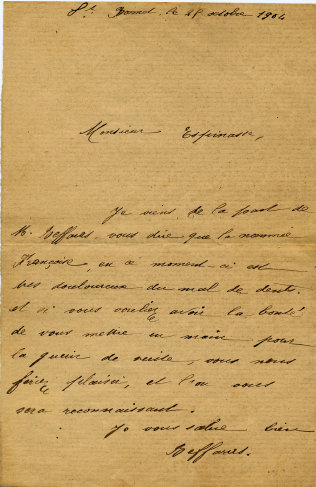 St. Bonnet, le 28 octobre 1904
Monsieur Espinasse,
Je viens de la part de
M. Beffares vous dire que la nommée
Françoise, en ce moment-ci est
très douloureux du mal de dents.
et si vous vouliez avoir la bonté
de vous mettre en main pour
la guérir de suite, vous nous
feriez plaisir, et l'on vous
sera reconnaissant.
Je vous salue bien
Beffares.